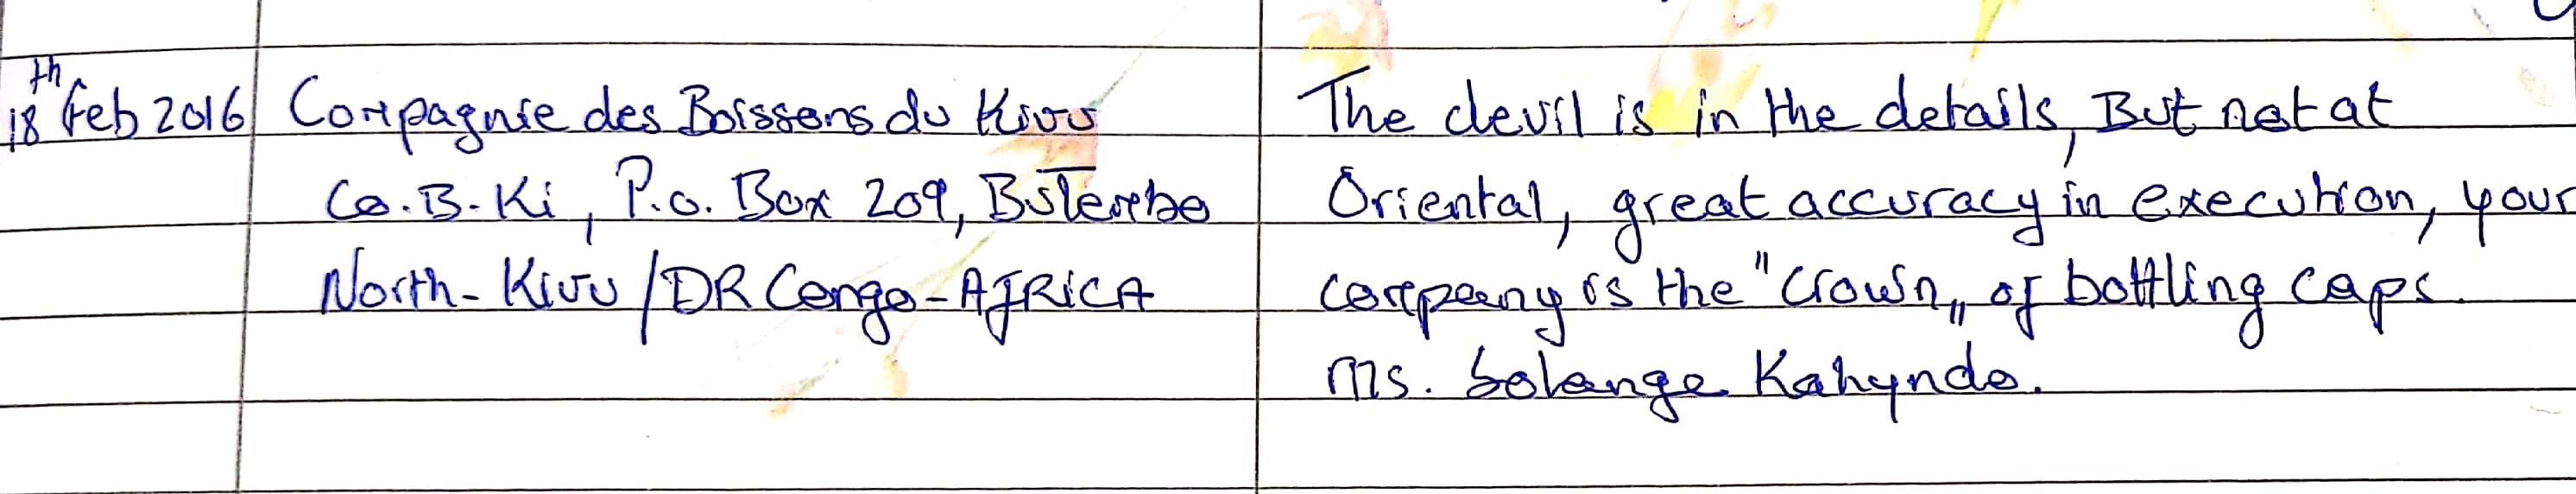 18th Feb 2016
Compagnie des Boissons du Kivu
Co.B.Ki, P.o. Box 209, Butembo
North-Kivu/DR Congo-AFRICA
The devil is in the details, But not at
Oriental, great accuracy in execution, your
company is the "Crown„ of bottling caps.
Ms. Solange Kahyndo.